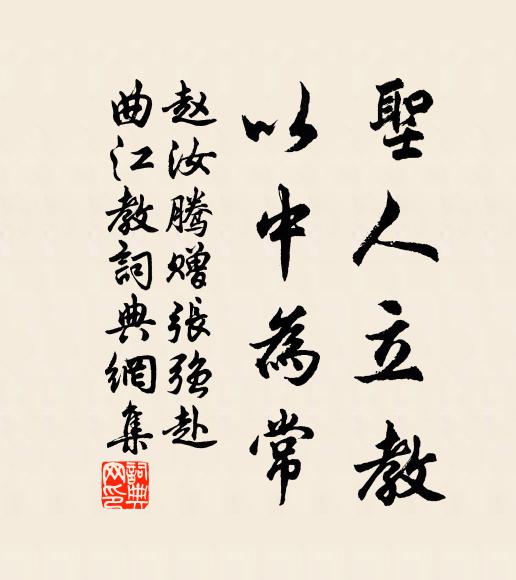 聖人立教
以中為常
赵汝騰赠張强赴
曲江教詞典網集
詞典
网印